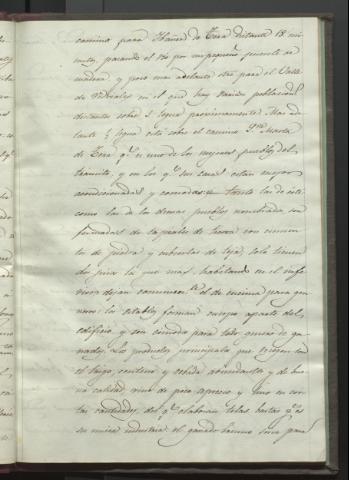 camino para Llanes de Tera distante 18 mi-
nutos, pasando el rio por un pequeño puente de
madera, y poco mas adelante otro para el Valle
de Vidriales en el que hay varias poblaciones
distantes sobre 2 leguas proximamente. Mas ade
lante ½ legua está sobre el camino Sta. Marta
de Tera qe. es uno de los mejores pueblos del
transito, y en los qe. sus casas estan mejor
acondicionadas y comodas. Tanto las de este
como las de los demas pueblos nombrados son
formadas de tapiales de tierra con cimien-
tos de piedra y cubiertas de teja, solo tienen
dos pisos la que mas, habitando en el infe-
rior y dejan comunmente. el de encima para gra
nero: los establos forman cuerpo aparte del
edificio y son comodos para toda especie de ga-
nados. Los productos principales que cogen son
el trigo, centeno y cebada abundantes y de bue
na calidad, vino de poco aprecio y lino en cor
tas cantidades, del qe. elaboran telas bastas qe. es
su unica industria: el ganado lanar sirve para